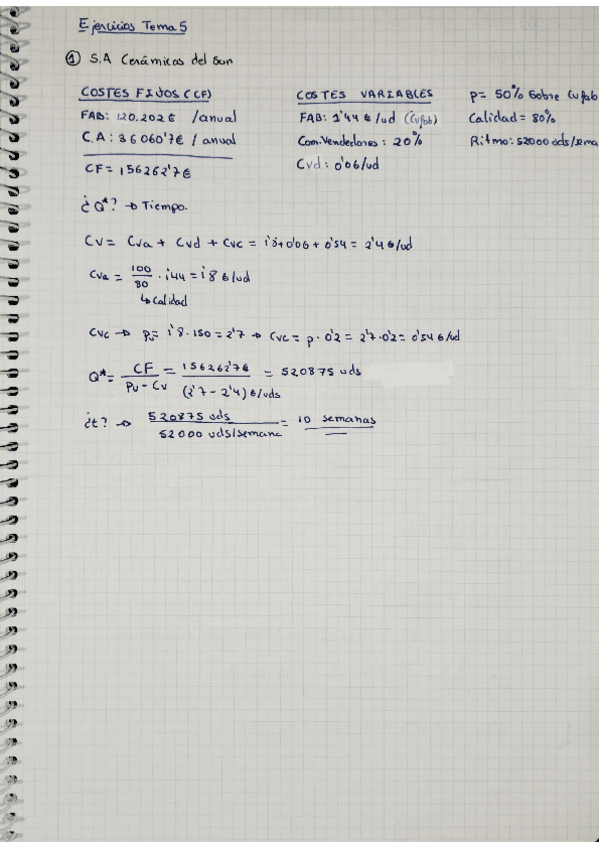 Ejercicios Tema 5
① S.A Cerámicas del Sur
COSTES FIJOS (CF)
FAB: 120.202€ /anual
C.A: 36060'7€ / anual
CF = 156262'7€
COSTES VARIABLES
FAB: 1'44 €/ud (Cvfab)
Com.Vendedores: 20%
Cvd: 0'06/ud
p= 50% Sobre Cvfab
Calidad = 80%
Ritmo: 52000 uds/sema
¿Q*? → Tiempo.
Cv = Cva + Cvd + Cvc = 1'8+0'06+0'54 = 2'4€/ud
Cva = 100/80 · 1'44 = 1'8 €/ud
↳ Calidad
Cvc → Pv = 1'8·150 = 2'7 → Cvc = p · 0'2 = 2'7·0'2 = 0'54 €/ud
Q* = CF/Pv - Cv = 156262'7€/(2'7 - 2'4) €/uds = 520875 uds
¿t? → 520875 uds/52000 uds/semana = 10 semanas